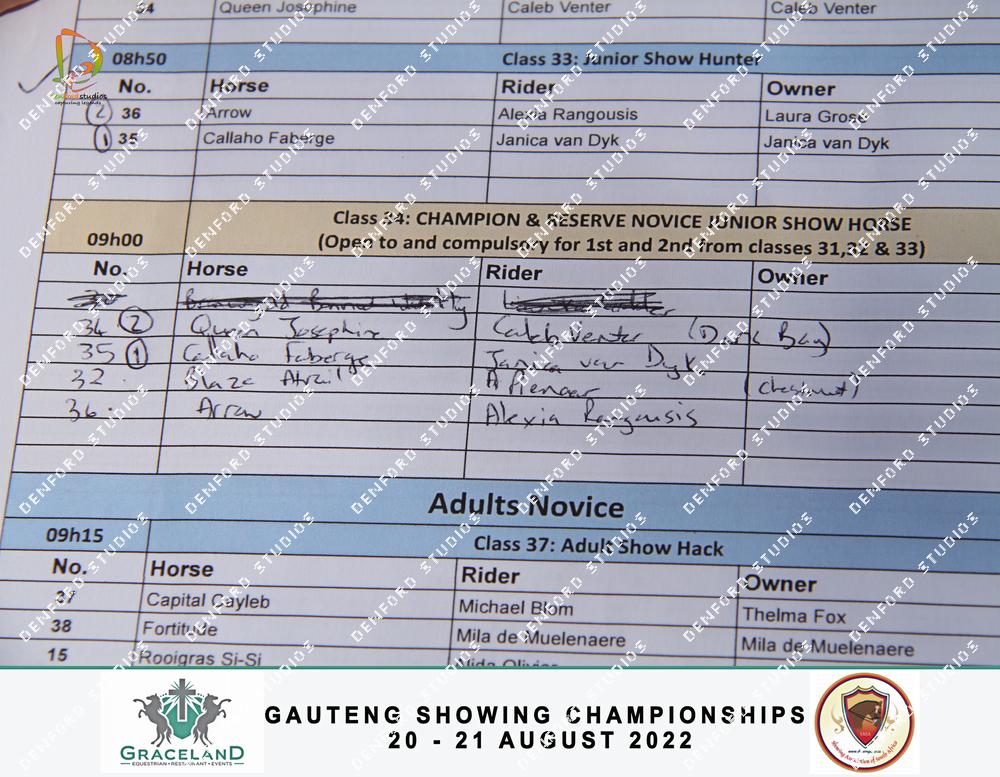 34 Queen Josephine Caleb Venter Caleb Venter
08h50 Class 33: Junior Show Hunter
No. Horse Rider Owner
2 36 Arrow Alexia Rangousis Laura Grose
1 35 Callaho Faberge Janica van Dyk Janica van Dyk
Class 34: CHAMPION & RESERVE NOVICE JUNIOR SHOW HORSE
09h00 (Open to and compulsory for 1st and 2nd from classes 31,32 & 33)
No. Horse Rider Owner
34 2 Queen Josephine Caleb Venter (Dark Bay)
35 1 Callaho Faberge Janica van Dyk
32 Blaze A Pienaar (Chesnut)
36 Arrow Alexia Rangousis
Adults Novice
09h15 Class 37: Adult Show Hack
No. Horse Rider Owner
37 Capital Cayleb Michael Blom Thelma Fox
38 Fortitude Mila de Muelenaere Mila de Muelenaere
15 Rooigras Si-Si Nida Olivier
DENFORD STUDIOS
denfordstudios
capturing legends
GRACELAND
EQUESTRIAN • RESTAURANT • EVENTS
GAUTENG SHOWING CHAMPIONSHIPS
20 - 21 AUGUST 2022
Showing Association of South Africa